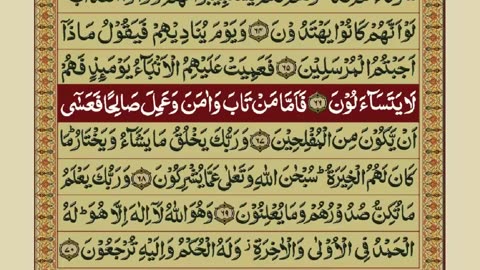 لَوْ اَنَّهُمْ كَانُوْا يَهْتَدُوْنَ ۝۶۴ وَيَوْمَ يُنَادِيْهِمْ فَيَقُوْلُ مَاذَاۤ
اَجَبْتُمُ الْمُرْسَلِيْنَ ۝۶۵ فَعَمِيَتْ عَلَيْهِمُ الْاَنْۢبَآءُ يَوْمَئِذٍ فَهُمْ
لَا يَتَسَآءَلُوْنَ ۝۶۶ فَاَمَّا مَنْ تَابَ وَاٰمَنَ وَعَمِلَ صَالِحًا فَعَسٰۤى
اَنْ يَّكُوْنَ مِنَ الْمُفْلِحِيْنَ ۝۶۷ وَرَبُّكَ يَخْلُقُ مَا يَشَآءُ وَيَخْتَارُ ؕ مَا
كَانَ لَهُمُ الْخِيَرَةُ ؕ سُبْحٰنَ اللّٰهِ وَتَعٰلٰى عَمَّا يُشْرِكُوْنَ ۝۶۸ وَرَبُّكَ يَعْلَمُ
مَا تُكِنُّ صُدُوْرُهُمْ وَمَا يُعْلِنُوْنَ ۝۶۹ وَهُوَ اللّٰهُ لَاۤ اِلٰهَ اِلَّا هُوَ ؕ لَهُ
الْحَمْدُ فِى الْاُوْلٰى وَالْاٰخِرَةِ ز وَلَهُ الْحُكْمُ وَاِلَيْهِ تُرْجَعُوْنَ ۝۷۰